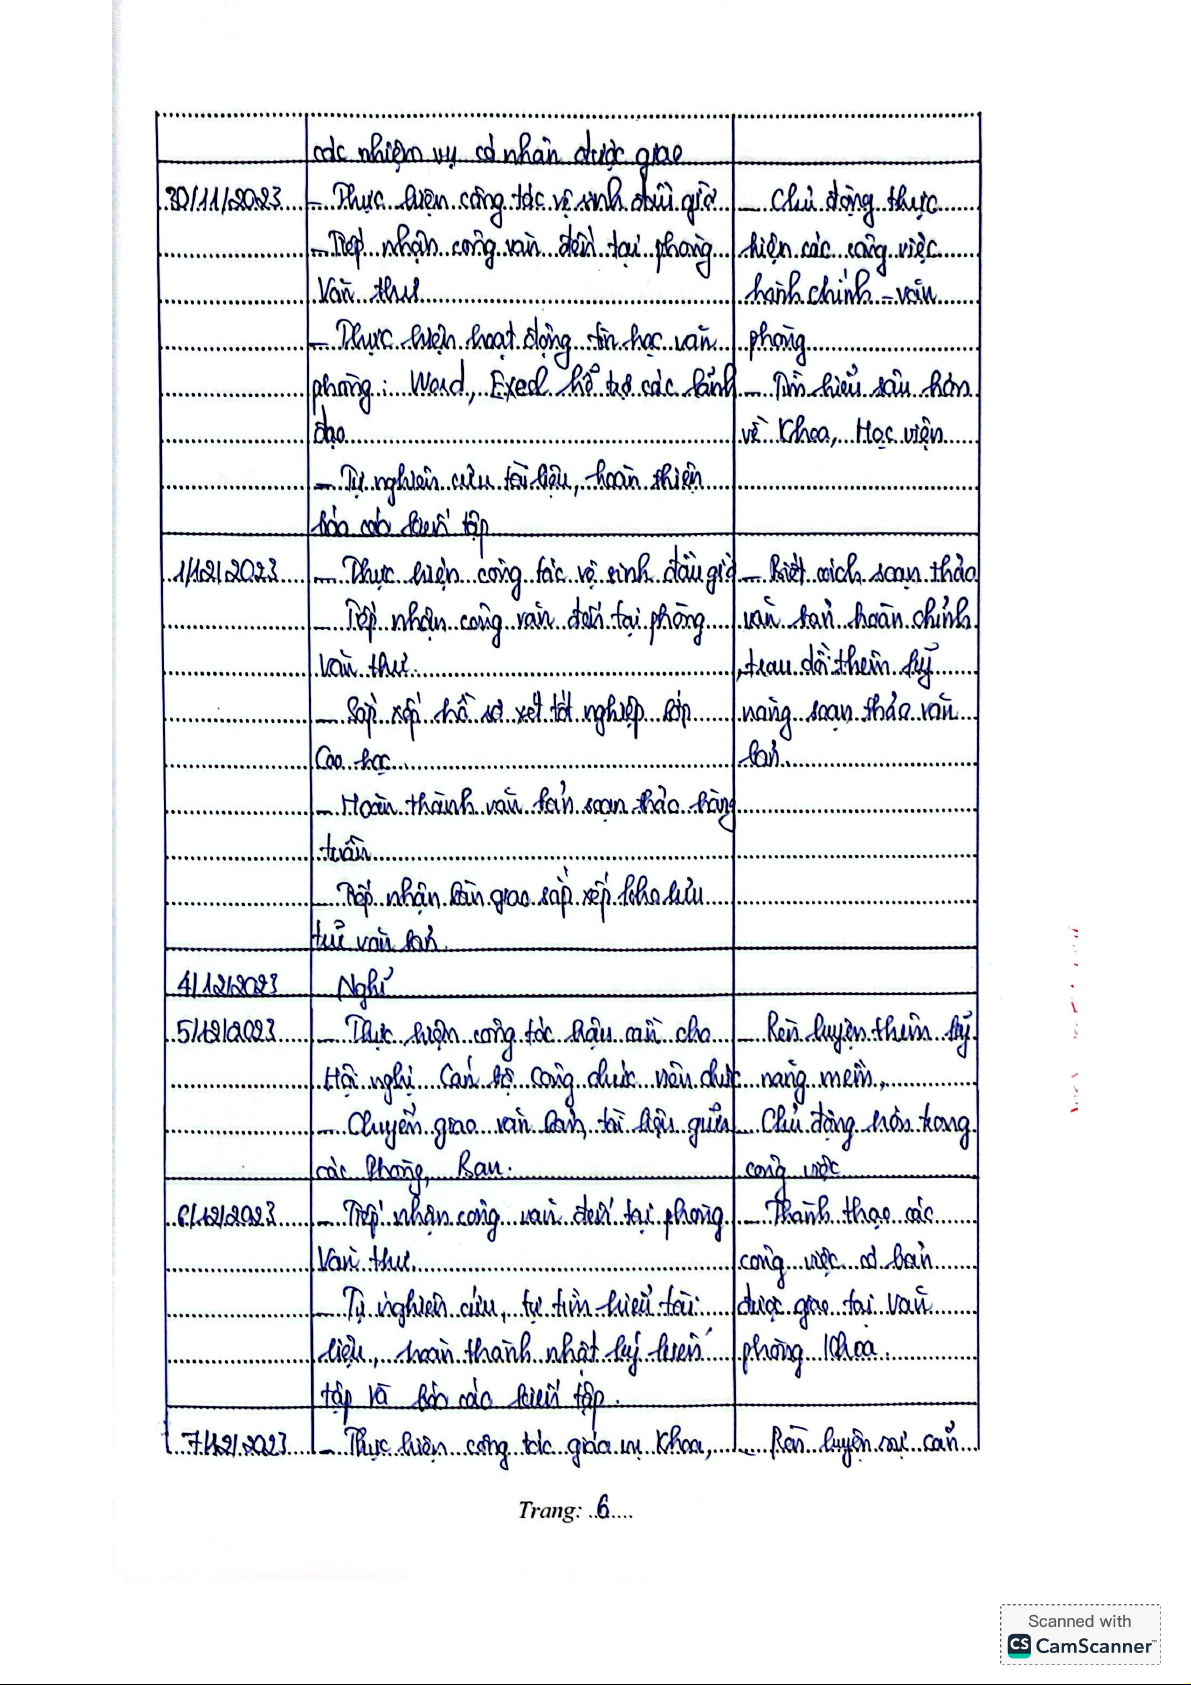 các nhiệm vụ cá nhân được giao
30/11/2023 - Thực hiện công tác vệ sinh đầu giờ - Chủ động thực
- Tiếp nhận công văn đến tại phòng hiện các công việc
Văn thư hành chính - văn
- Thực hiện hoạt động tin học văn phòng
phòng: Word, Exed hỗ trợ các lãnh - Tìm hiểu sâu hơn
đạo về Khoa, Học viện
- Tự nghiên cứu tài liệu, hoàn thiện
báo cáo kiến tập
1/12/2023 - Thực hiện công tác vệ sinh đầu giờ - Biết cách soạn thảo
- Tiếp nhận công văn đến tại phòng văn bản hoàn chỉnh
văn thư. , trau dồi thêm kỹ
- Sắp xếp hồ sơ xét tốt nghiệp lớp năng soạn thảo văn
Cao học. bản.
- Hoàn thành văn bản soạn thảo hàng
tuần
- Tiếp nhận bàn giao sắp xếp kho lưu
trữ văn bản.
4/12/2023 Nghỉ
5/12/2023 - Thực hiện công tác hậu cần cho - Rèn luyện thêm kỹ
Hội nghị Cán bộ công chức viên chức năng mềm,
- Chuyển giao văn bản, tài liệu giữa - Chủ động hơn trong
các Phòng, Ban. công việc
6/12/2023 - Tiếp nhận công văn đến tại phòng - Thành thạo các
Văn thư. công việc cơ bản
- Tự nghiên cứu, tự tìm hiểu tài được giao tại Văn
liệu, hoàn thành nhật ký kiến phòng Khoa.
tập và báo cáo kiến tập.
7/12/2023 - Thực hiện công tác giáo vụ Khoa, - Rèn luyện sự cẩn
Trang: 6
Scanned with
CS CamScanner